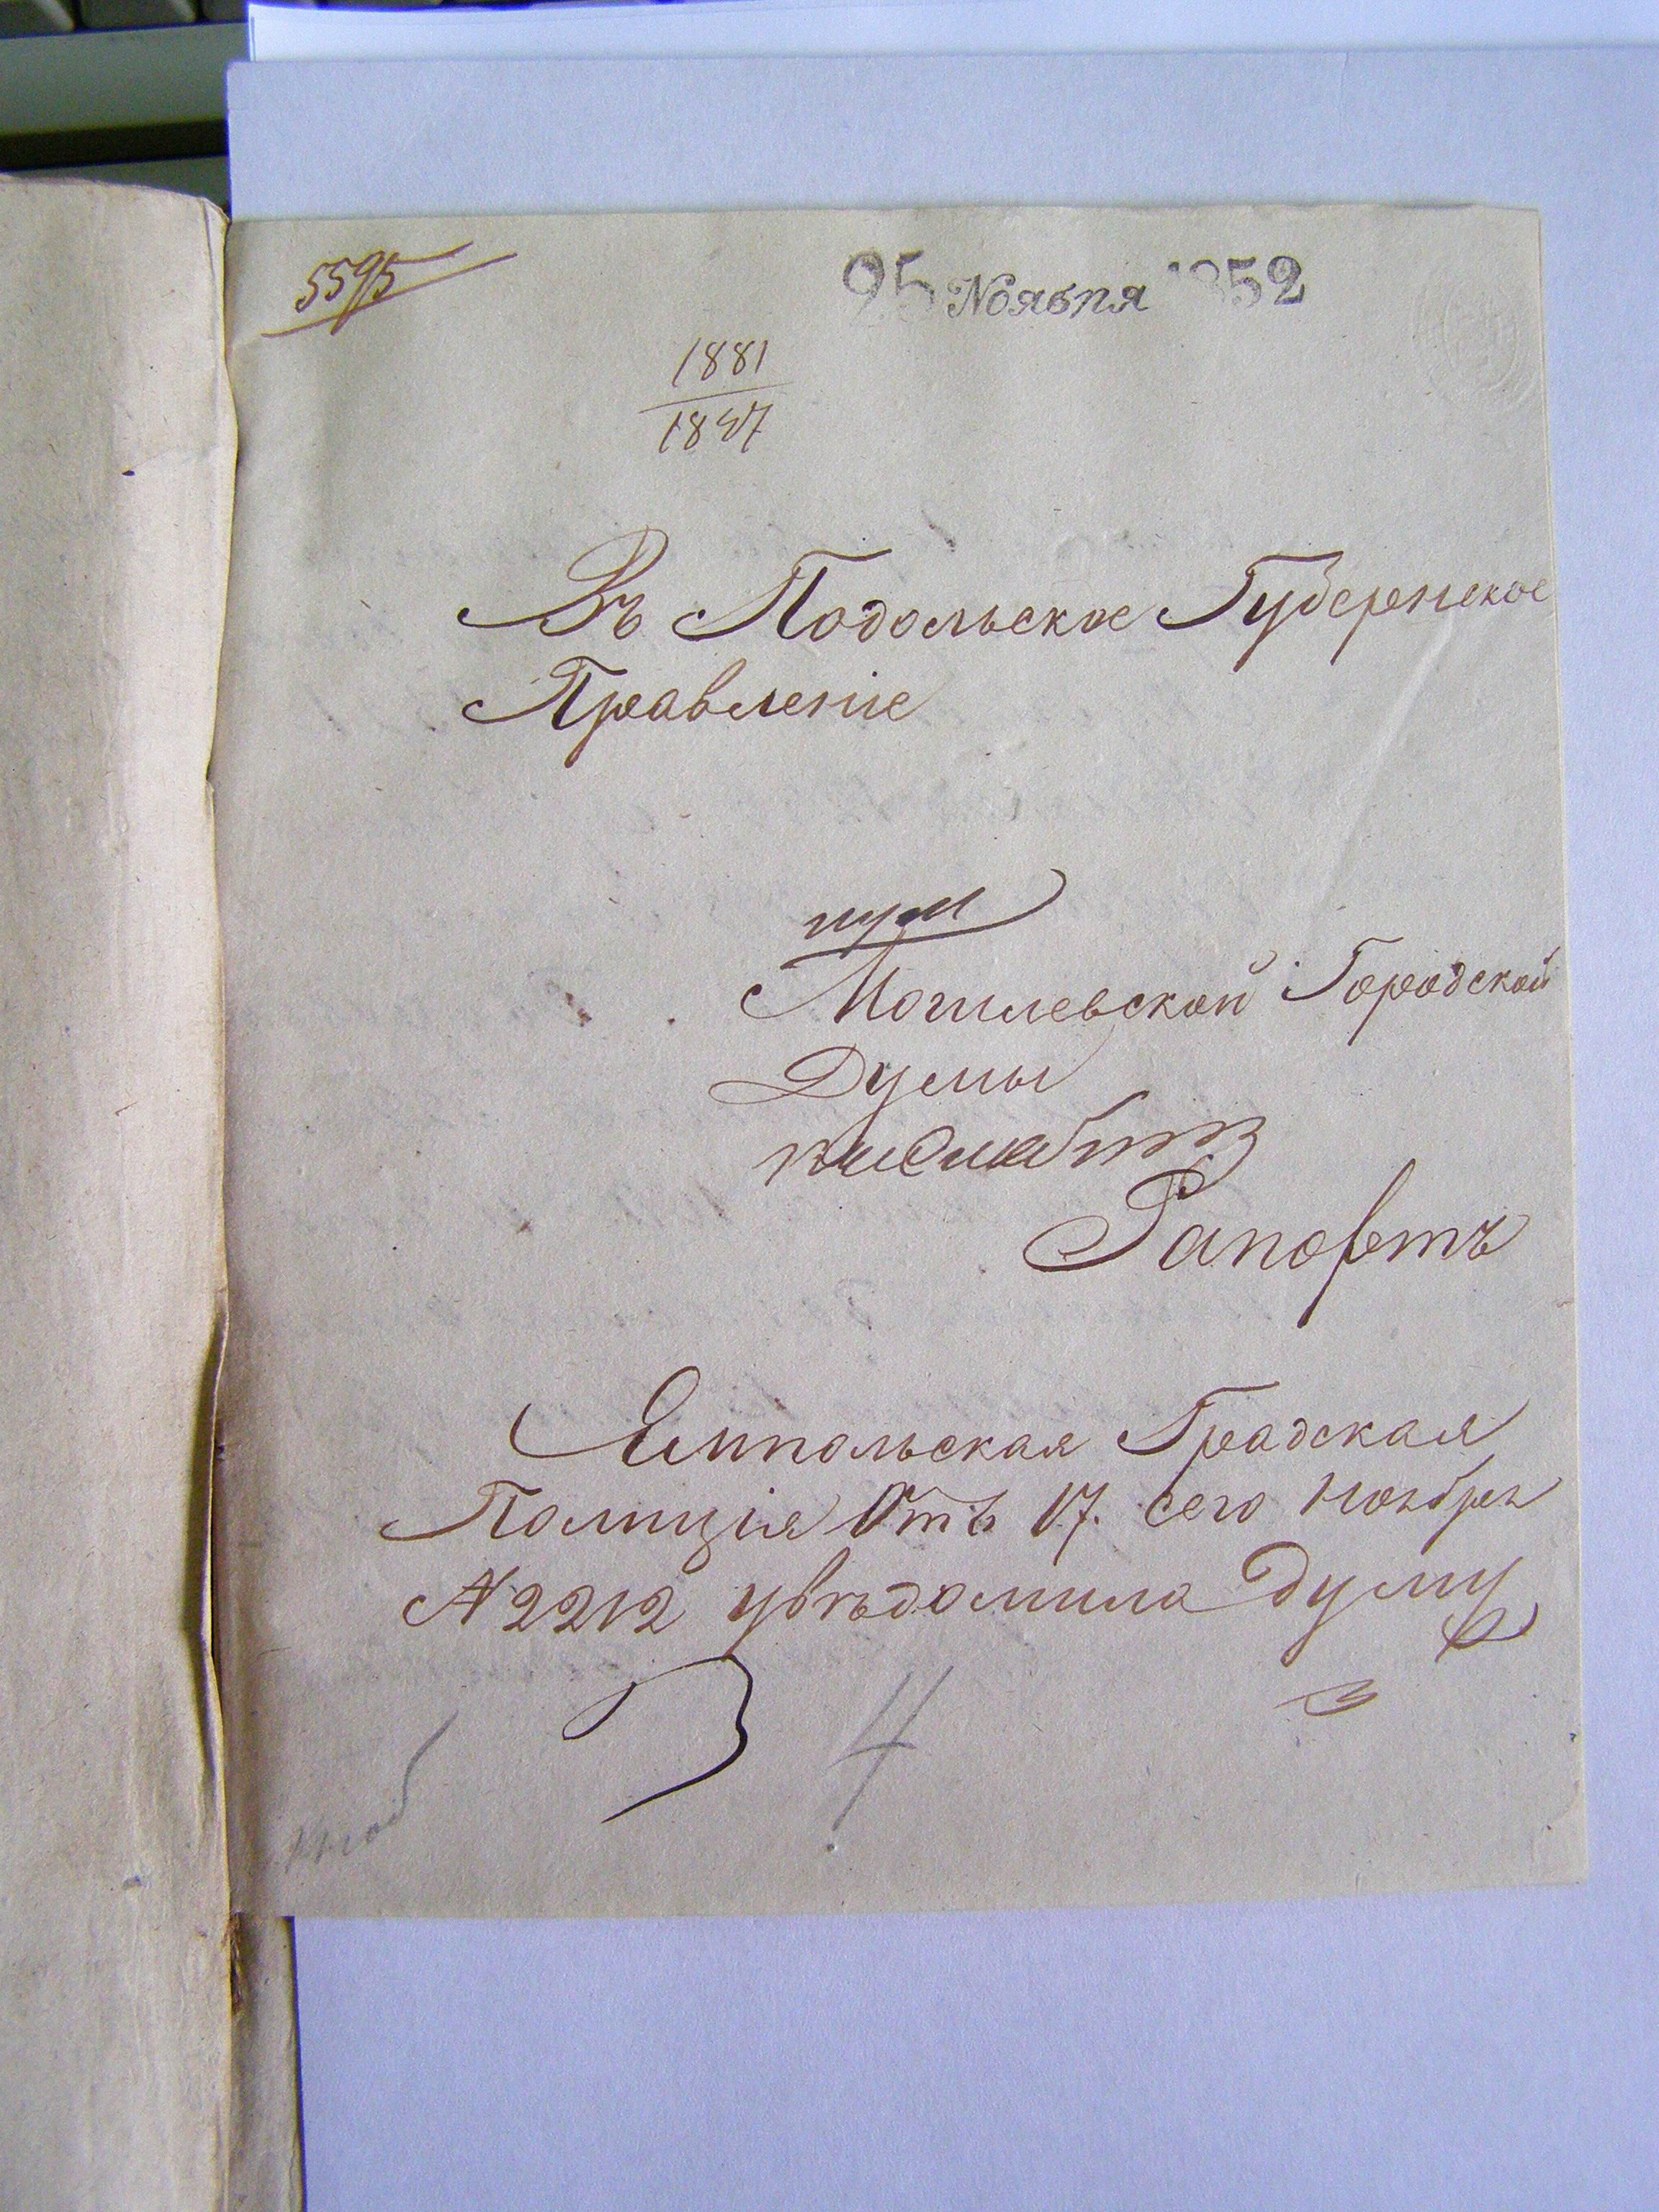 5595
25 Ноября 1852
1881
1847
Въ Подольское Губернское
Правленіе
Могилевской Городской
Думы
Рапортъ
Ямпольская Градская
Полиція Отъ 17. сего Ноября
№ 2212 увѣдомила Думу
4